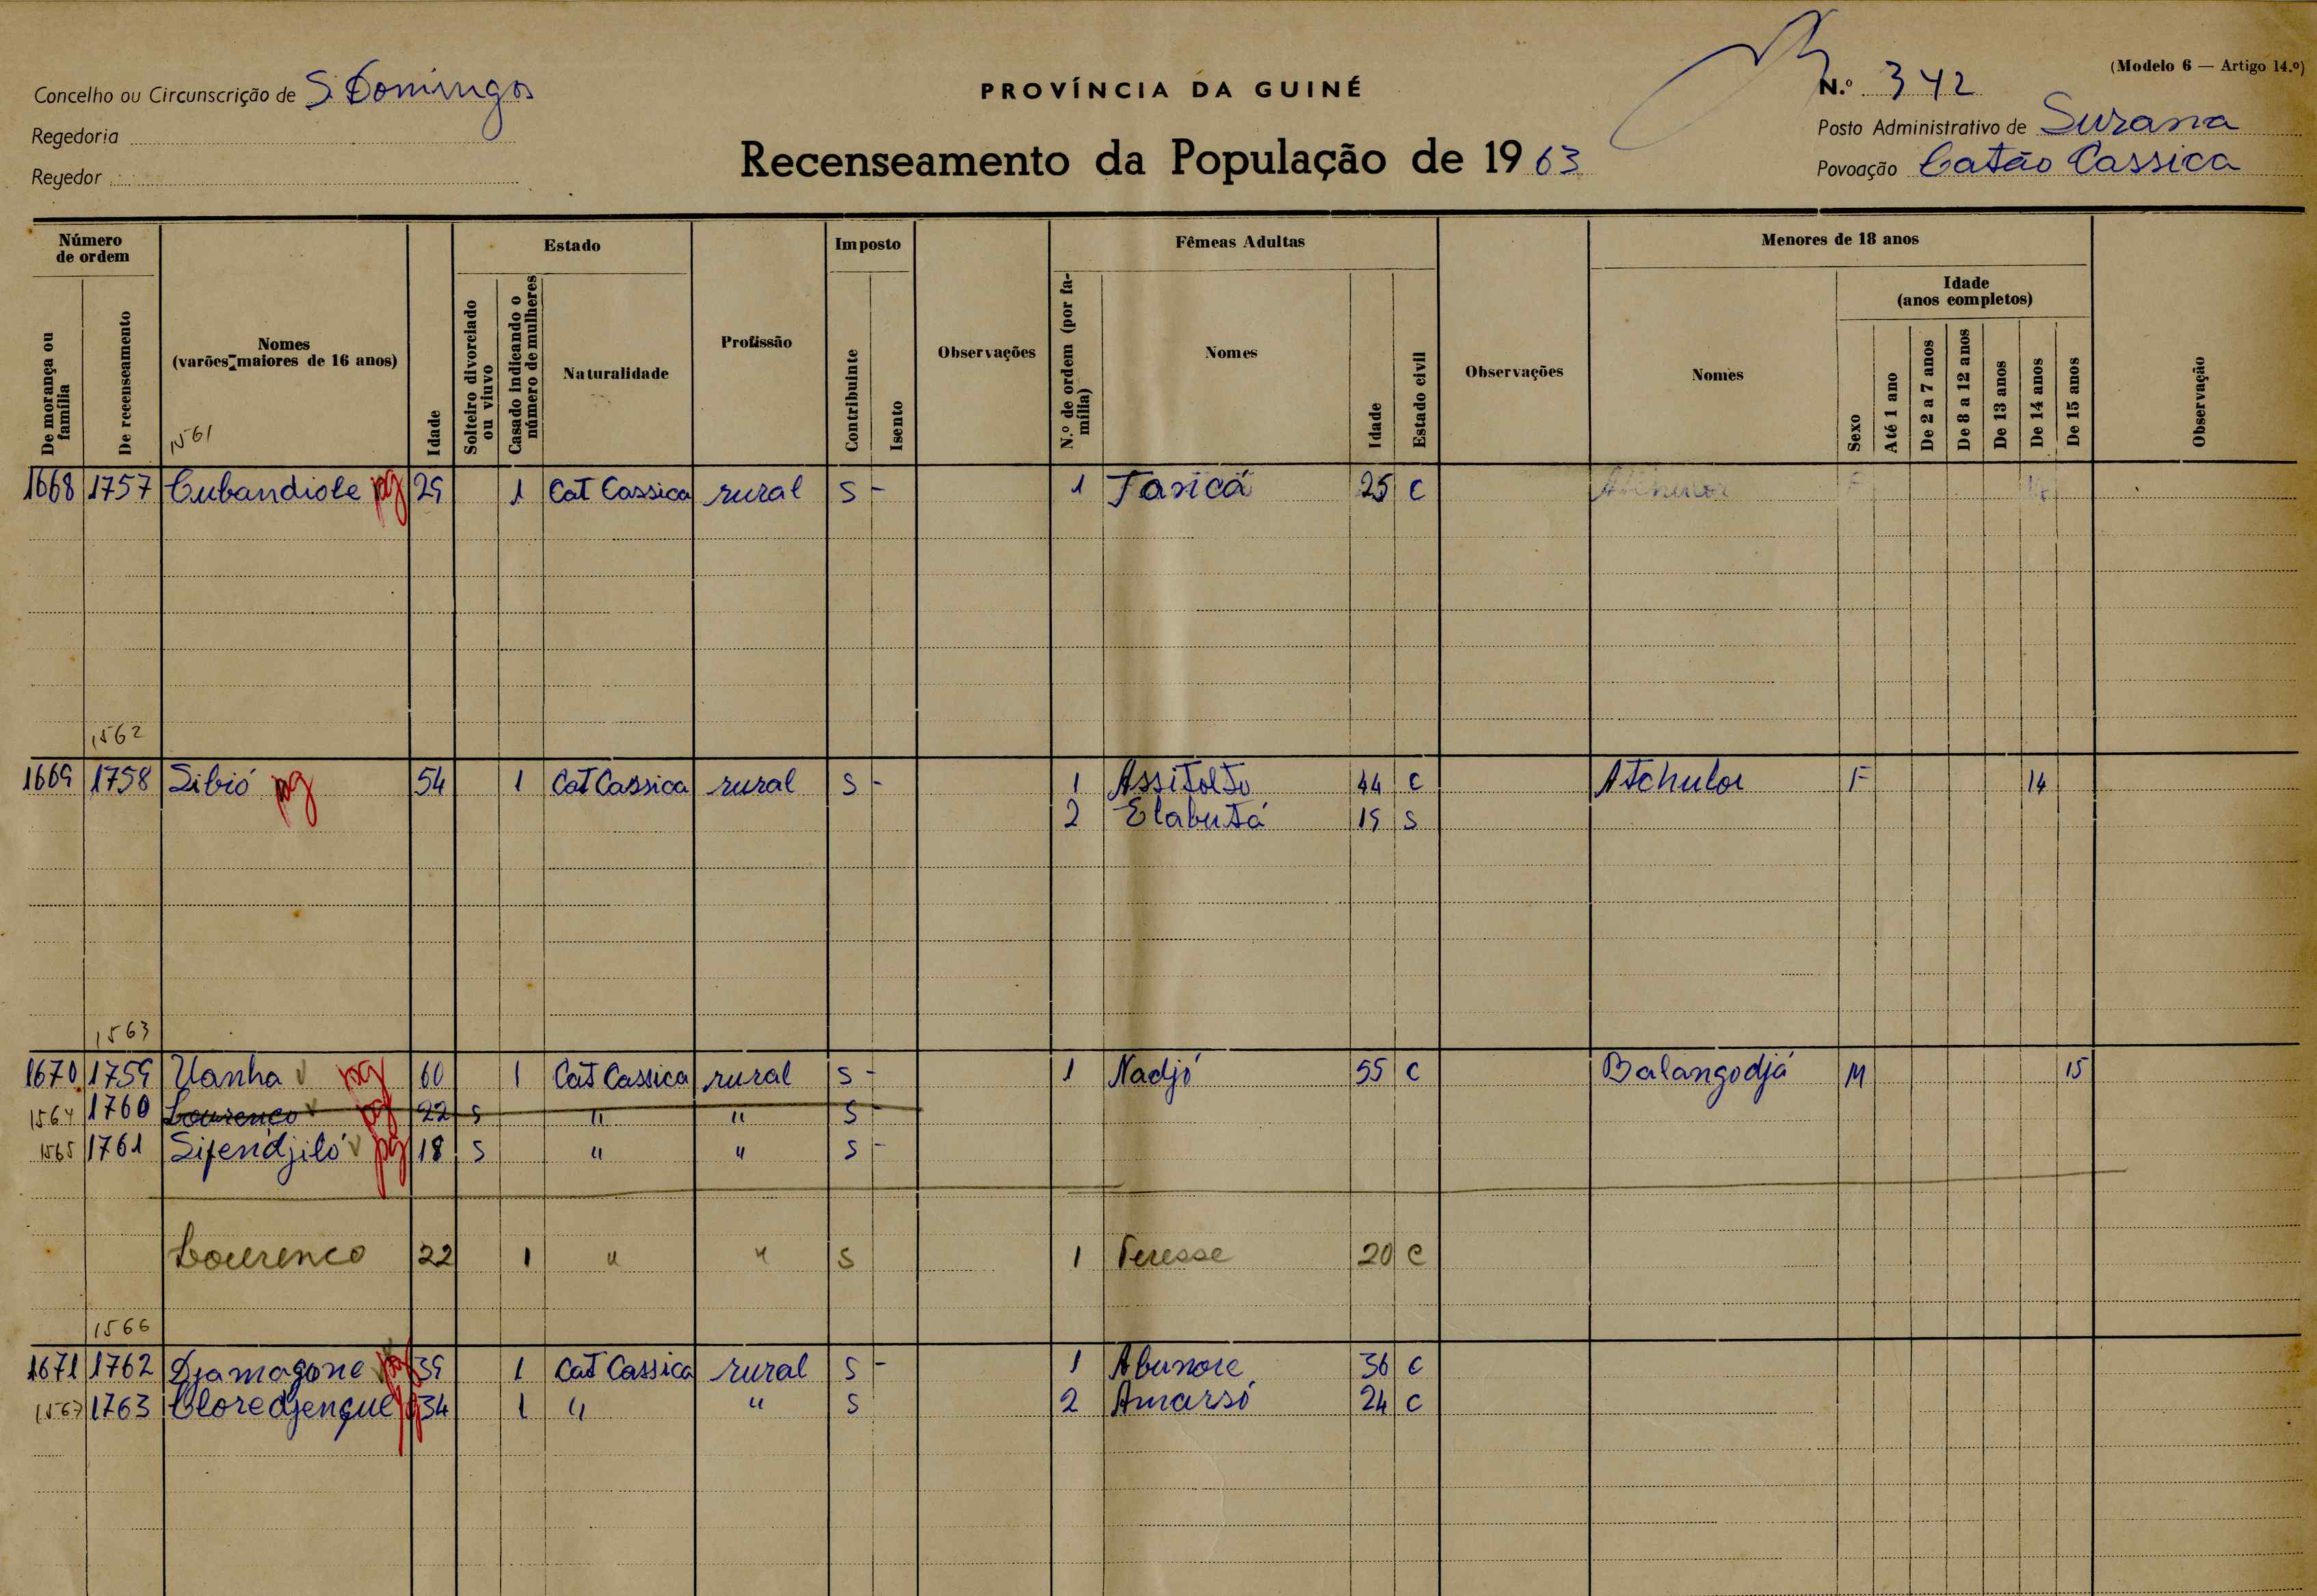 Concelho ou Circunscrição de S. Domingos
Regedoria
Regedor
PROVÍNCIA DA GUINÉ
Recenseamento da População de 1963
(Modelo 6 — Artigo 14.º)
N.º 342
Posto Administrativo de Surana
Povoação Catão Cassica
Número de ordem
De morança ou família
De recenseamento
Nomes
(varões maiores de 16 anos)
Idade
Estado
Solteiro divorciado ou viuvo
Casado indicando o número de mulheres
Naturalidade
Profissão
Imposto
Contribuinte
Isento
Observações
Fêmeas Adultas
N.º de ordem (por família)
Nomes
Idade
Estado civil
Observações
Menores de 18 anos
Nomes
Sexo
Idade
(anos completos)
Até 1 ano
De 2 a 7 anos
De 8 a 12 anos
De 13 anos
De 14 anos
De 15 anos
Observação
1561
1668 1757 Cubandiole pg 29 1 Cat Cassica rural S - 1 Tanicá 25 C
1562
1669 1758 Sibió pg 54 1 Cat Cassica rural S - 1 Assitolto 44 C Atchulor F 14
2 Elabutá 19 S
1563
1670 1759 Uanha pg 60 1 Cat Cassica rural S - 1 Nadjó 55 C Balangodjá M 15
1564 1760 Lourenco pg 22 S " " S -
1565 1761 Sifendjiló pg 18 S " " S -
Lourenco 22 1 " " S 1 Teresse 20 C
1566
1671 1762 Djamagone pg 39 1 Cat Cassica rural S - 1 Abunore 36 C
1567 1763 Cloredjengue pg 34 1 " " S 2 Amarsó 24 C